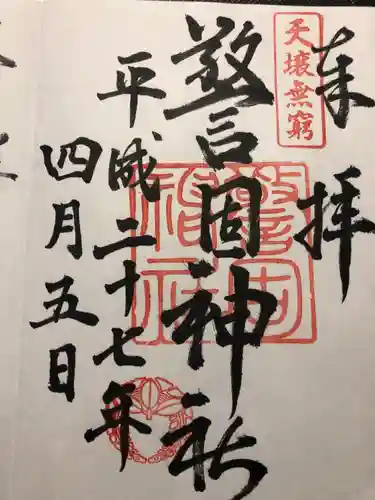 奉拝
天壌無窮
警固神社
警固神社
平成二十七年
四月五日